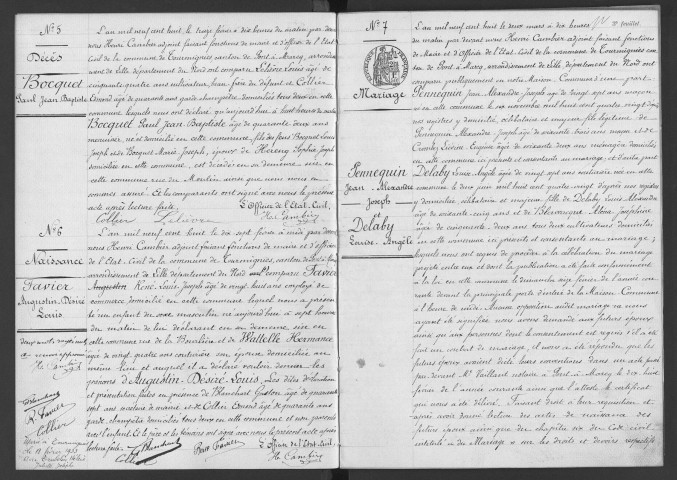 N° 5
Décès
Bocquet
Paul Jean Baptiste
L'an mil neuf cent huit, le treize février à dix heures du matin, par devant
nous Henri Cambier adjoint faisant fonctions de maire et d'officier de l'Etat
Civil de la commune de Tourmignies canton de Pont-à-Marcq, arrondissement
de Lille département du Nord ont comparu Lelièvre Louis âgé de
cinquante quatre ans cultivateur, beau frère du défunt et Collier
Edmond âgé de quarante ans garde champêtre, domiciliés tous deux en cette
commune lesquels nous ont déclaré qu'aujourd'hui à huit heures du matin
Bocquet Paul Jean Baptiste âgé de quarante deux ans
menuisier, né et domicilié en cette commune, fils des feus Bocquet Louis
Joseph et de Bocquet Marie Joseph, époux de Herena Sophie Joseph
domiciliée en cette commune, est décédé en sa demeure sise en
cette commune rue du Moulin ainsi que nous nous en
sommes assuré. Et les comparants ont signé avec nous le présent
acte après lecture faite.
L'Officier de l'Etat-Civil,
Collier Lelièvre Hri Cambier
N° 6
Naissance
Favier
Augustin-Désiré
Louis
L'an mil neuf cent huit le dix sept février à midi par devant
nous Henri Cambier adjoint faisant fonctions de maire et d'officier
de l'Etat-Civil de la commune de Tourmignies, canton de Pont-à-Marcq
arrondissement de Lille département du Nord est comparu Favier
Augustin René Louis Joseph âgé de vingt huit ans employé de
commerce domicilié en cette commune lequel nous a présenté
un enfant du sexe masculin né aujourd'hui à sept heures
du matin de lui déclarant en sa demeure sise en
cette commune rue de la Bourlière et de Wattelle Hermance
âgée de vingt quatre ans couturière son épouse domiciliée au
même lieu et auquel il a déclaré vouloir donner les
prénoms d'Augustin-Désiré-Louis. Les dites déclaration
et présentation faites en présence de Blanchart Gaston âgé de quarante
sept ans
et de Collier Edmond âgé de quarante ans
garde champêtre domiciliés tous deux en cette commune et non parents
avec l'enfant. Et le père et les témoins ont signé avec nous le présent acte après
lecture faite.
L'Officier de l'Etat-Civil,
Collier Blanchart Favier Hri Cambier
Blanchart
R. Favier
Collier
N° 7
Mariage
Pennequin
Jean-Alexandre
Joseph
&
Delaby
Louise-Angèle
L'an mil neuf cent huit le deux mars à dix heures
du matin par devant nous Henri Cambier adjoint faisant fonctions
de Maire et d'Officier de l'Etat-Civil de la commune de Tourmignies canton
de Pont-à-Marcq, arrondissement de Lille, département du Nord ont
comparu publiquement en notre Maison Commune d'une part
Pennequin Jean Alexandre Joseph âgé de vingt sept ans maçon
né en cette commune le novembre mil huit cent quatre vingt
nos registres y domicilié, célibataire et majeur fils légitime de
Pennequin Alexandre Joseph âgé de soixante trois ans maçon et de
Eugénie âgée de soixante deux ans ménagère domiciliés
en cette commune ici présents et consentants au mariage; et d'autre part
Delaby Louise Angèle âgée de vingt sept ans née en cette
commune le deux juin mil huit cent quatre vingt d'après nos registres
y domiciliée célibataire et majeure fille de Delaby Louis Alexandre
âgé de soixante cinq ans et de Joséphine
âgée de cinquante deux ans tous deux cultivateurs domiciliés
en cette commune ici présents et consentants au mariage;
lesquels nous ont requis de procéder à la célébration du mariage
projeté entre eux et dont la publication a été faite conformément
à la loi en cette commune le dimanche février de l'année
courante devant la principale porte d'entrée de la Maison Commune
à l'heure de midi. Aucune opposition audit mariage ne nous
ayant été signifiée nous avons demandé aux futurs époux
ainsi qu'aux personnes dont le consentement est requis s'il a été
fait un contrat de mariage, il nous a été répondu que les
futurs époux avaient réglé leurs conventions dans un acte passé
par devant Me Vaillant notaire à Pont-à-Marcq le dix huit
février de l'année courante ainsi que l'atteste le certificat
qui nous a été délivré. Faisant droit à leur réquisition et
après avoir donné lecture des actes de naissance des
futurs époux ainsi que du chapitre six du Code civil
intitulé du Mariage sur les droits et devoirs respectifs